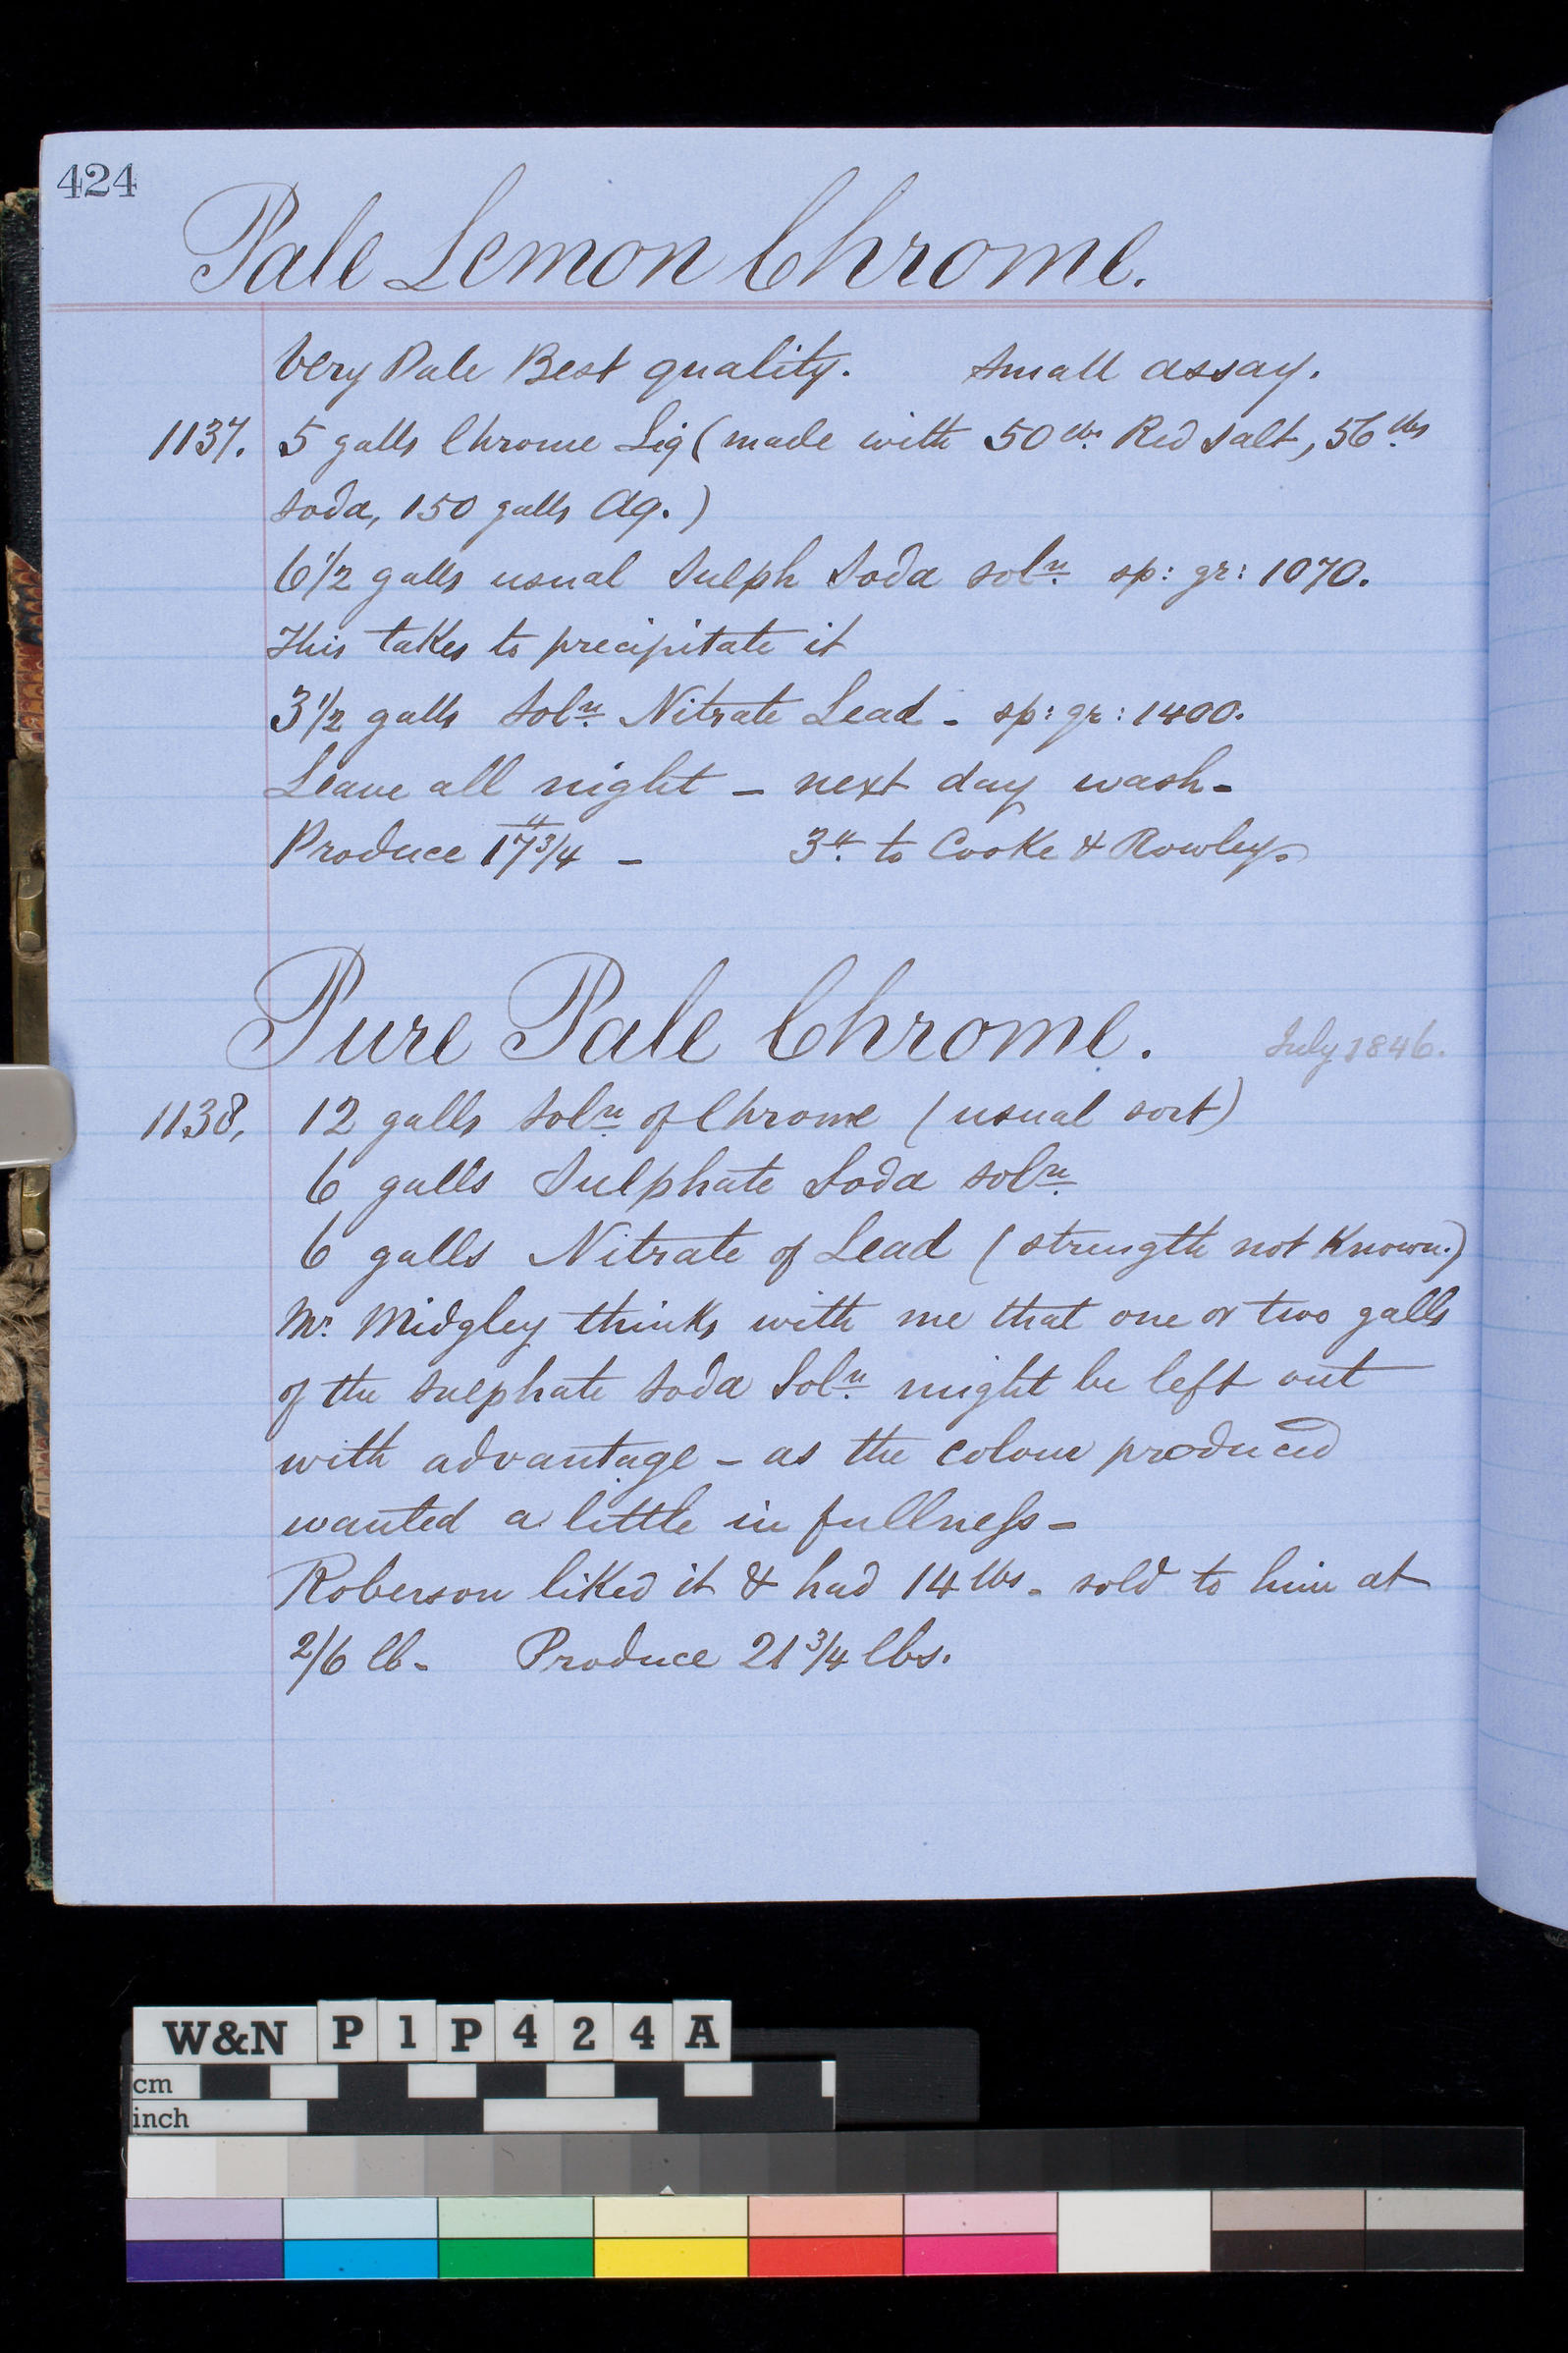 424
Pale Lemon Chrome.
Very Pale Best quality. Small assay.
1137. 5 galls Chrome Liq (made with 50 lbs. Red Salt, 56 lbs
Soda, 150 galls Aq.)
6 1/2 galls usual Sulph Soda soln. sp: gr: 1070.
This takes to precipitate it
3 1/2 galls Soln. Nitrate Lead - sp: gr: 1400.
Leave all night - next day wash -
Produce 17 3/4 - 3 to Cooke & Rowley.
Pure Pale Chrome. July 1846.
1138. 12 galls Soln. of Chrome (usual sort)
6 galls Sulphate Soda soln.
6 galls Nitrate of Lead (strength not Known.)
Mr. Midgley thinks with me that one or two galls
of the sulphate Soda Soln. might be left out
with advantage - as the colour produced
wanted a little in fullness -
Roberson liked it & had 14 lbs - sold to him at
2/6 lb - Produce 21 3/4 lbs.
W&N P 1 P 4 2 4 A
cm
inch